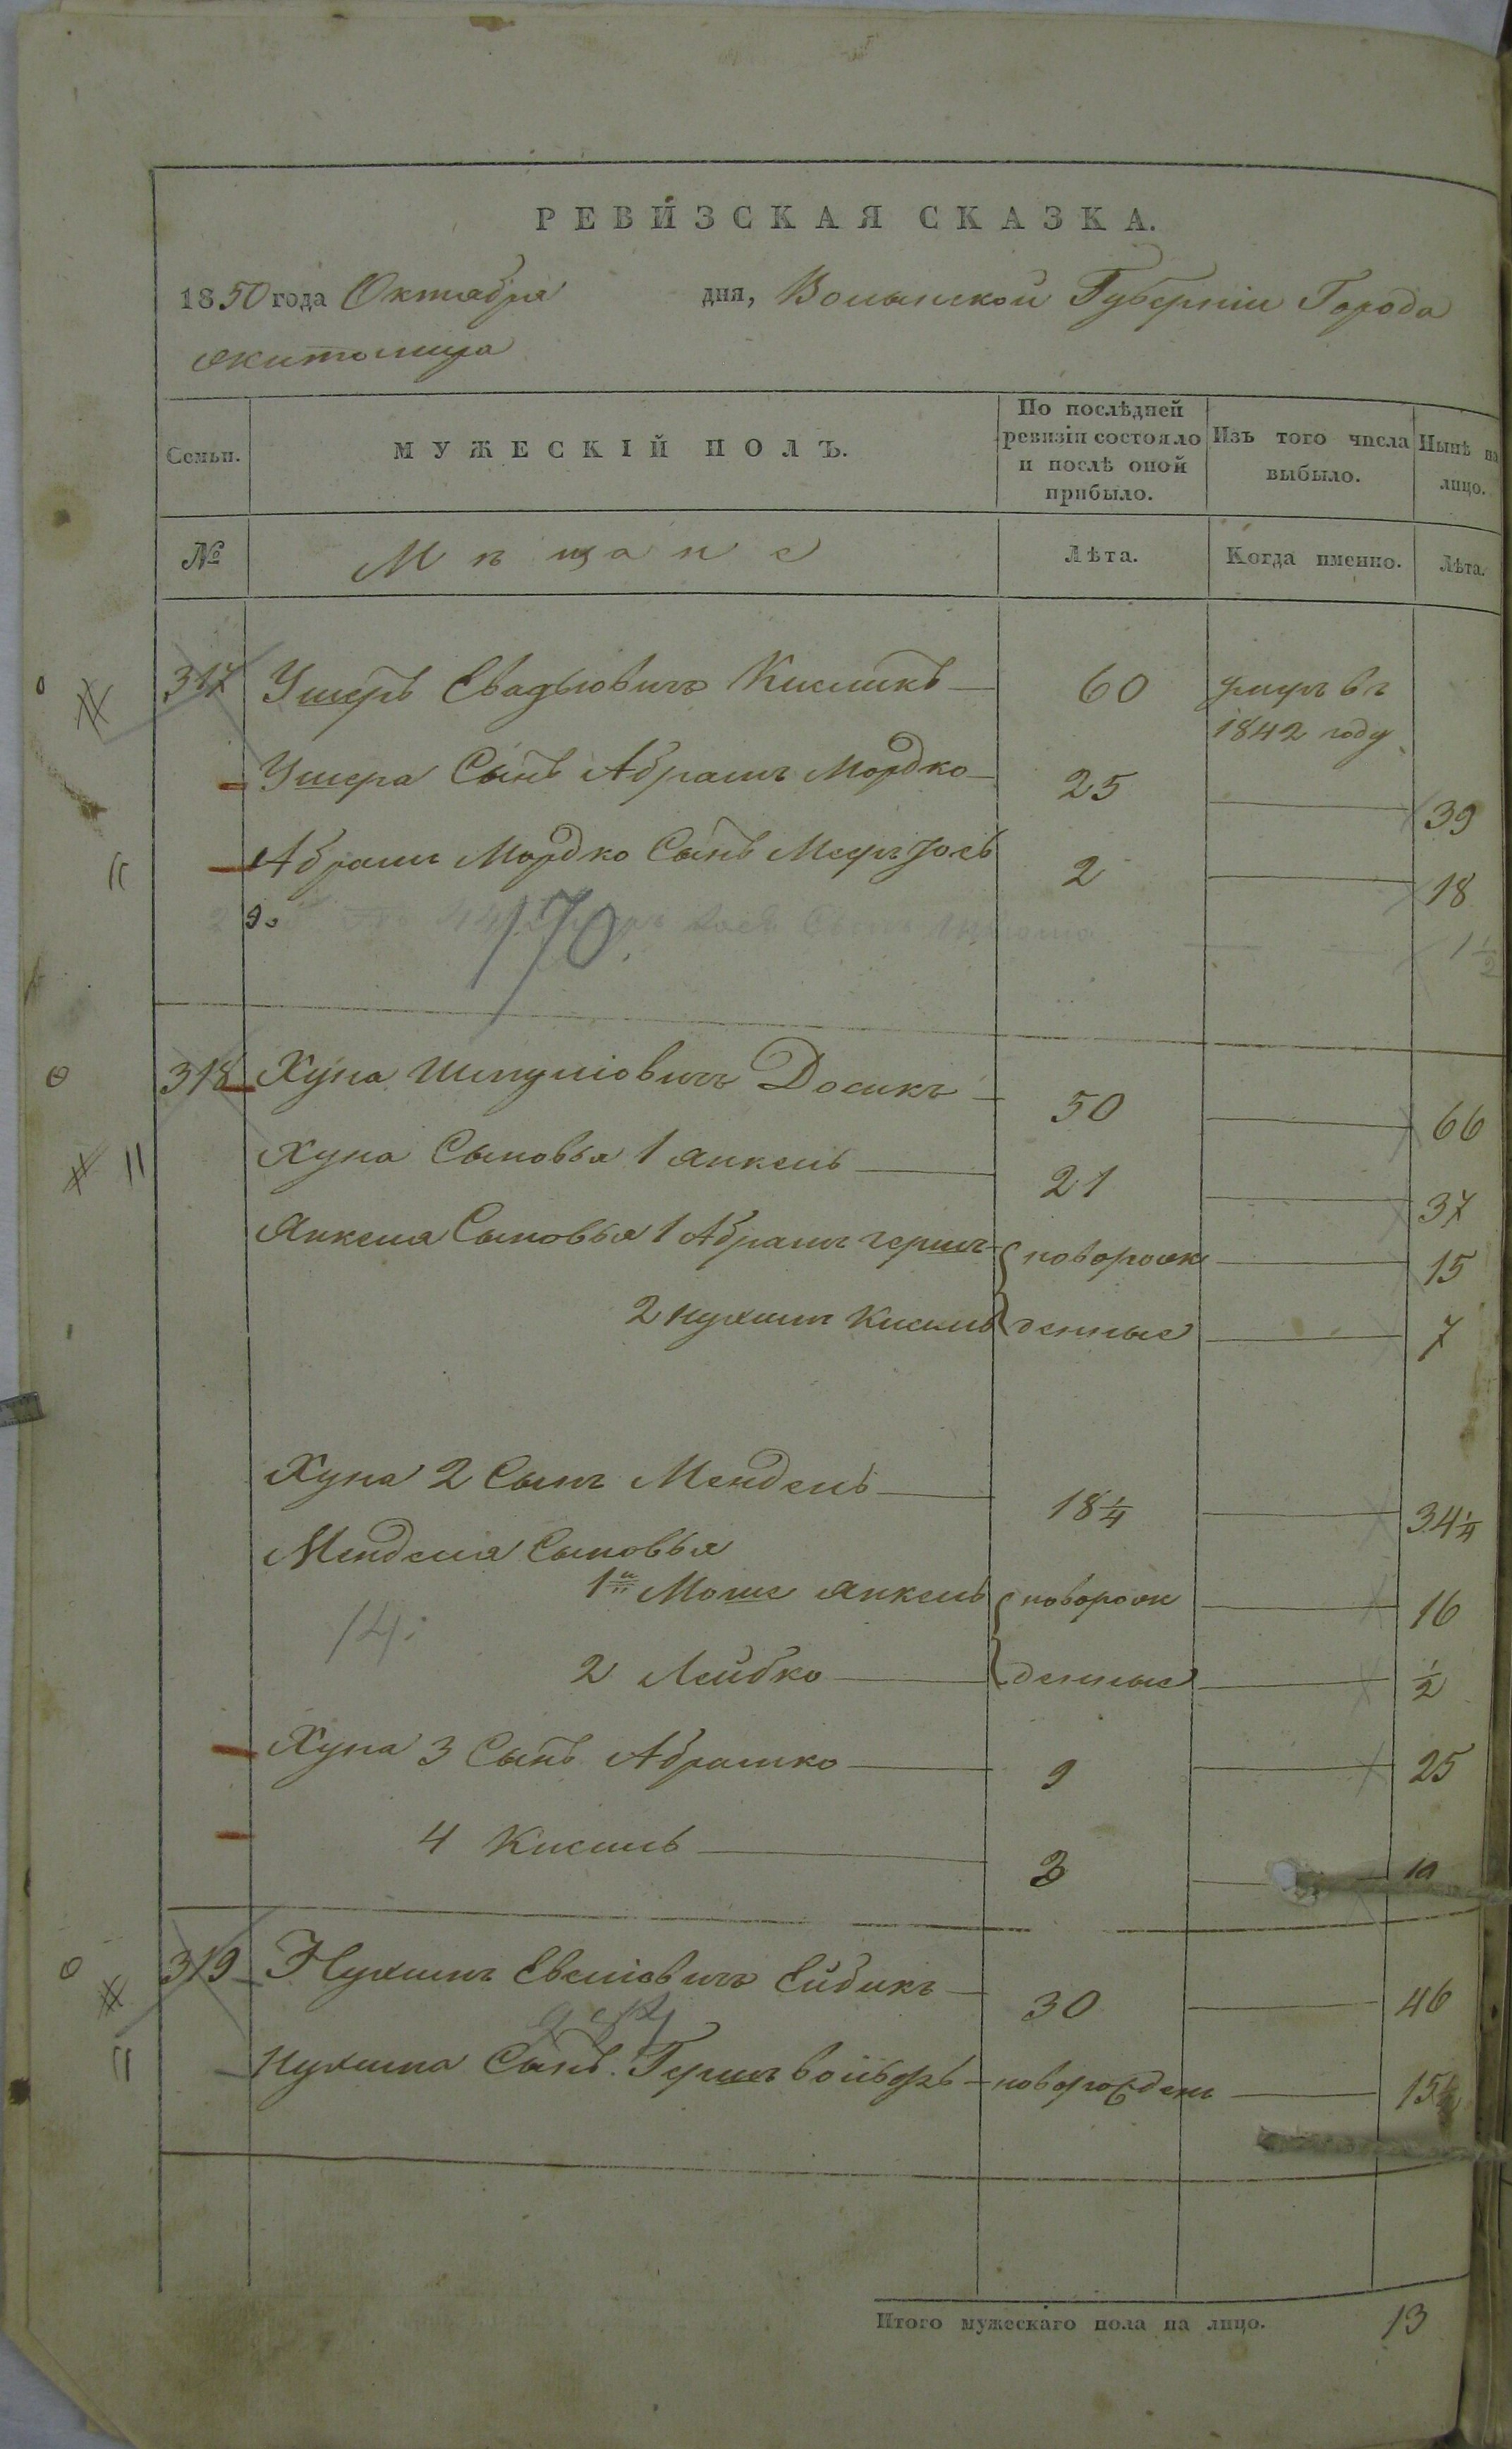 РЕВИЗСКАЯ СКАЗКА.
1850 года Октября дня, Волынской Губерніи Города
Житомира
Семьи.
МУЖЕСКІЙ ПОЛЪ.
По послѣдней ревизіи состояло и послѣ оной прибыло.
Изъ того числа выбыло.
Нынѣ на лицо.
№ Мѣщане Лѣта. Когда именно. Лѣта.
317 Ушеръ Кисликъ 60 умеръ въ
1842 году
Ушера Сынъ Абрамъ Мордко 25 39
Абрамъ Мордко Сынъ Мееръ Іосъ 2 18
170. Сынъ 1 1/2
318 Хуна Шмуліовичъ Досикъ 50 66
Хуна Сыновья 1 Янкель 21 37
Янкеля Сыновья 1 Абрамъ Гершъ новорож 15
2 Нухимъ Кисиль денные 7
Хуна 2 Сынъ Мендель 18 1/4 34 1/4
Менделя Сыновья
1й Моше Янкель новорож 16
14.
2 Лейбко денные 1/2
Хуна 3 Сынъ Абрамко 9 25
4 Кисиль 3
319 Нухимъ Евеліовичъ Ейдикъ 30 46
Нухима Сынъ Гершъ Вольфъ новорожденъ 15 1/2
Итого мужескаго пола на лицо. 13